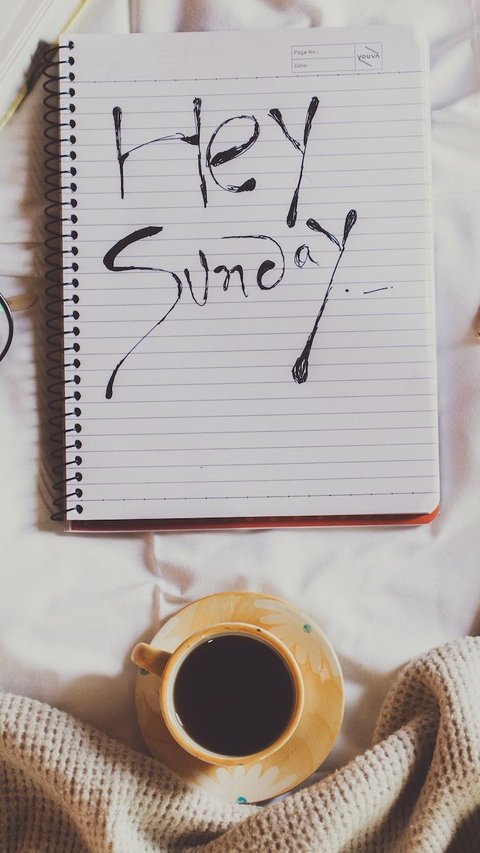 Page No.:
Date:
youva
Hey
Sunday